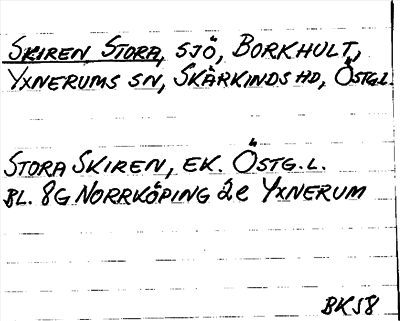 SKIREN STORA, SJÖ, BORKHULT,
YXNERUMS SN, SKÄRKINDS HD, ÖSTG.L.
STORA SKIREN, EK. ÖSTG.L.
BL. 8G NORRKÖPING 2e YXNERUM
BK58